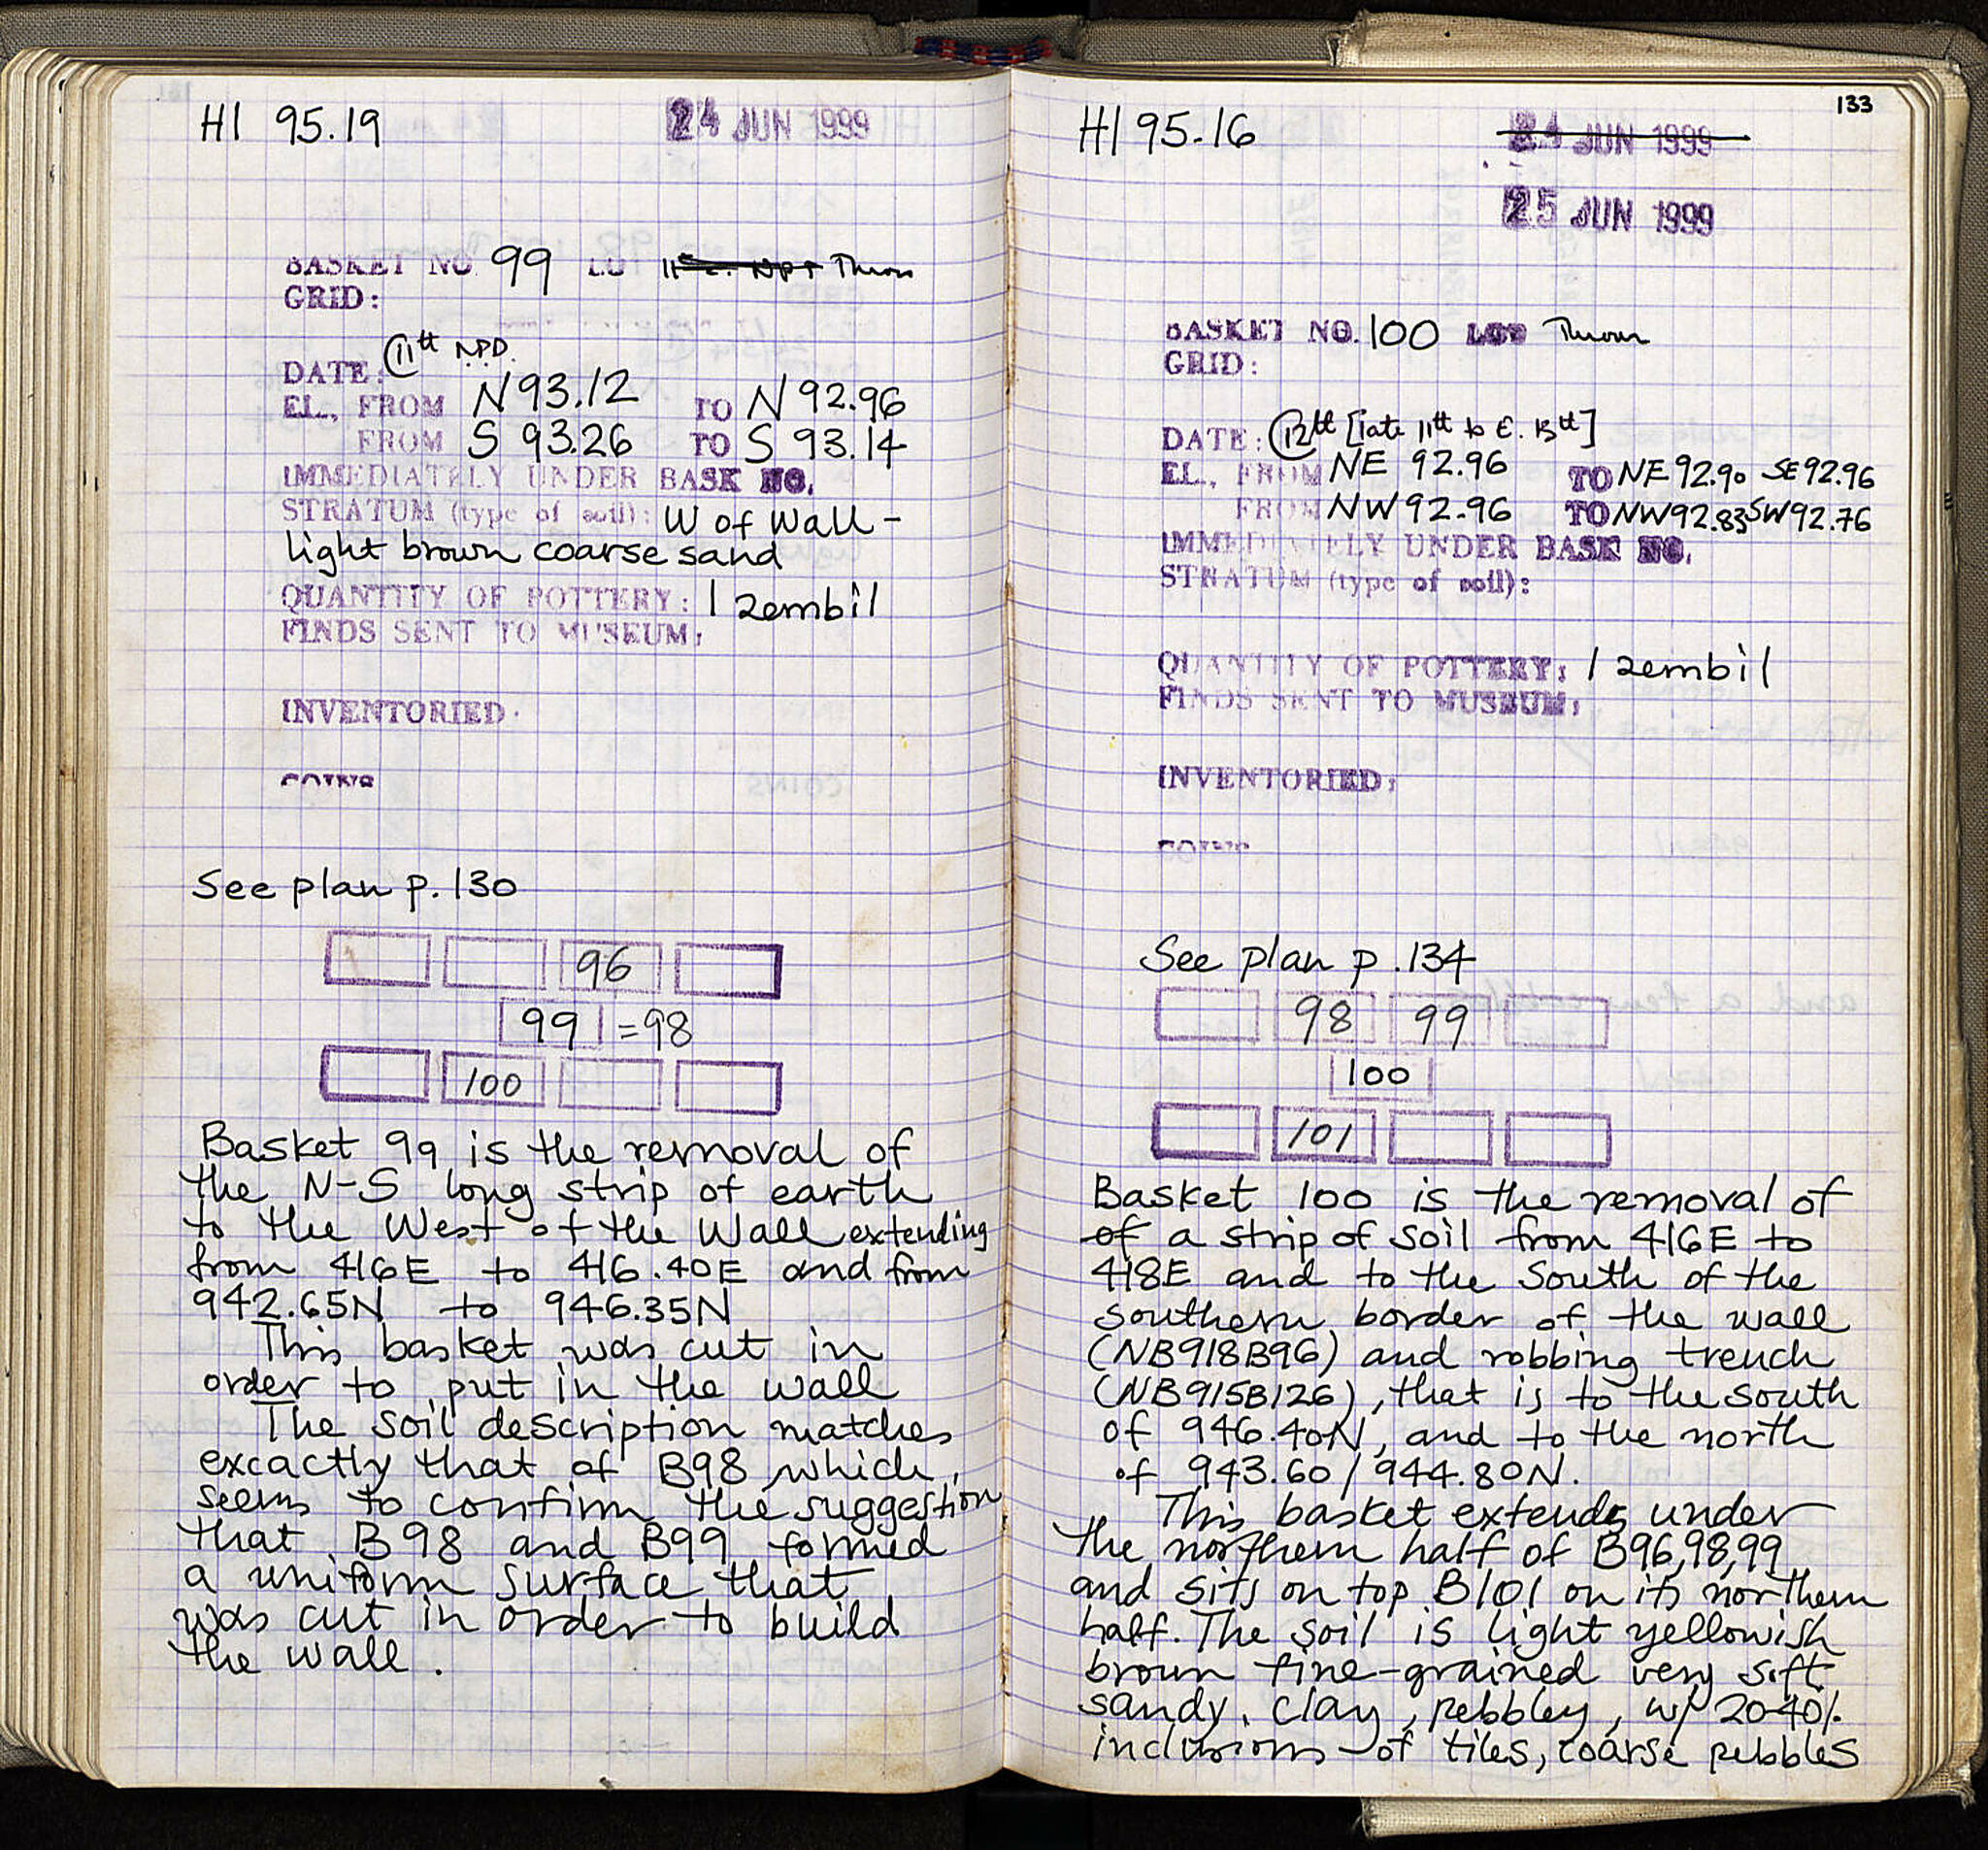 H1 95.19
24 JUN 1999
BASKET NO 99 LO Thrown
GRID:
DATE: 11th NPD.
EL., FROM N 93.12 TO N 92.96
FROM S 93.26 TO S 93.14
IMMEDIATELY UNDER BASK NO.
STRATUM (type of soil): W of Wall -
light brown coarse sand
QUANTITY OF POTTERY: 1 zembil
FINDS SENT TO MUSEUM:
INVENTORIED.
COINS
See plan p. 130
96
99 = 98
100
Basket 99 is the removal of
the N-S long strip of earth
to the West of the Wall extending
from 416E to 416.40E and from
942.65N to 946.35N
This basket was cut in
order to put in the wall
The soil description matches
excactly that of B98 which,
seems to confirm the suggestion
that B98 and B99 formed
a uniform surface that
was cut in order to build
the wall.
133
H1 95.16
24 JUN 1999
25 JUN 1999
BASKET NO. 100 LOT Thrown
GRID:
DATE: 12th [late 11th to E. 13th]
EL., FROM NE 92.96 TO NE 92.90 SE 92.96
FROM NW 92.96 TO NW 92.83 SW 92.76
IMMEDIATELY UNDER BASK NO.
STRATUM (type of soil):
QUANTITY OF POTTERY: 1 zembil
FINDS SENT TO MUSEUM:
INVENTORIED:
COINS
See plan p. 134
98 99
100
101
Basket 100 is the removal of
of a strip of soil from 416E to
418E and to the South of the
southern border of the wall
(NB918B96) and robbing trench
(NB915B126), that is to the south
of 946.40N, and to the north
of 943.60/944.80N.
This basket extends under
the northern half of B96,98,99
and sits on top B101 on its northern
half. The soil is light yellowish
brown fine-grained very soft
sandy, clay, pebbley, w/ 20-40%
inclusions of tiles, coarse pebbles